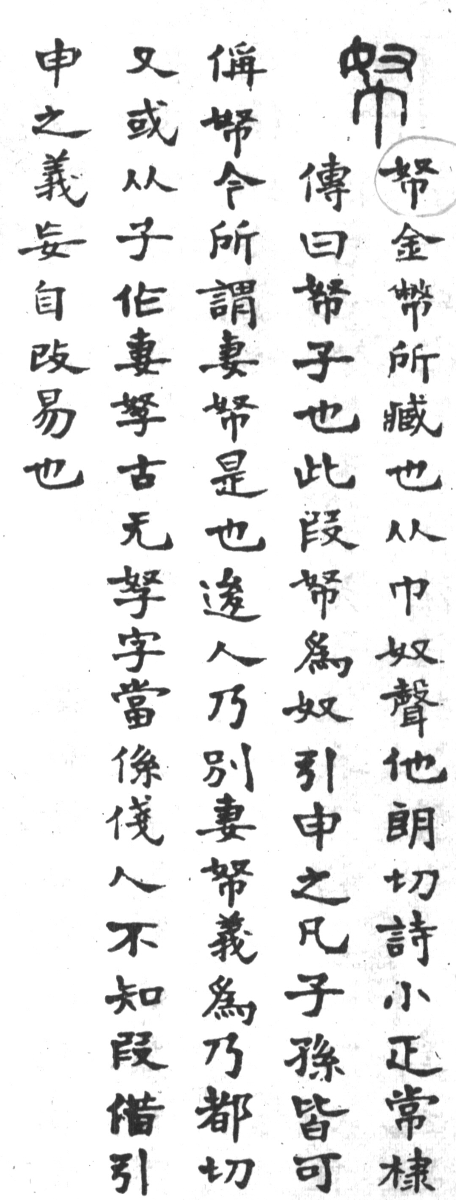 帑
帑金幣所臧也从巾奴聲他朗切詩小正常棣
傳曰帑子也此叚帑爲奴引申之凡子孫皆可
偁帑今所謂妻帑是也後人乃別妻帑義爲乃都切
又或从子作妻孥古无孥字當係後人不知叚借引
申之義妄自改易也